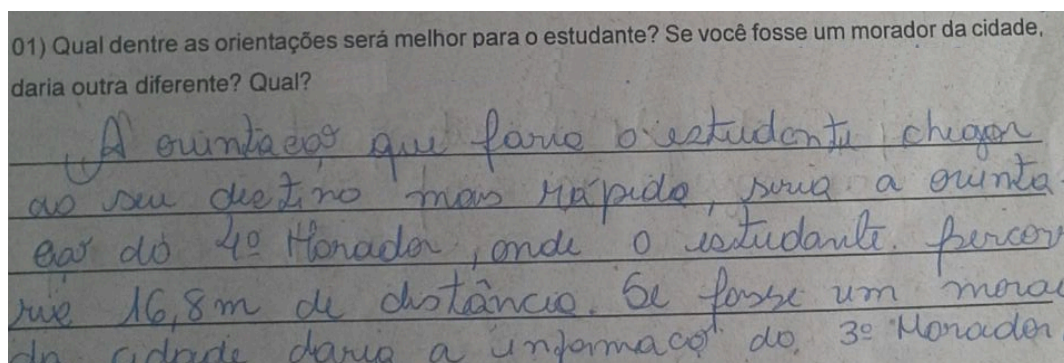 01) Qual dentre as orientações será melhor para o estudante? Se você fosse um morador da cidade,
daria outra diferente? Qual?
A orientação que faria o estudante chegar
ao seu destino mais rápido, seria a orienta-
ção do 4º Morador, onde o estudante percor
ria 16,8m de distância. Se fosse um morad
da cidade daria a informaçõ do 3º Morador